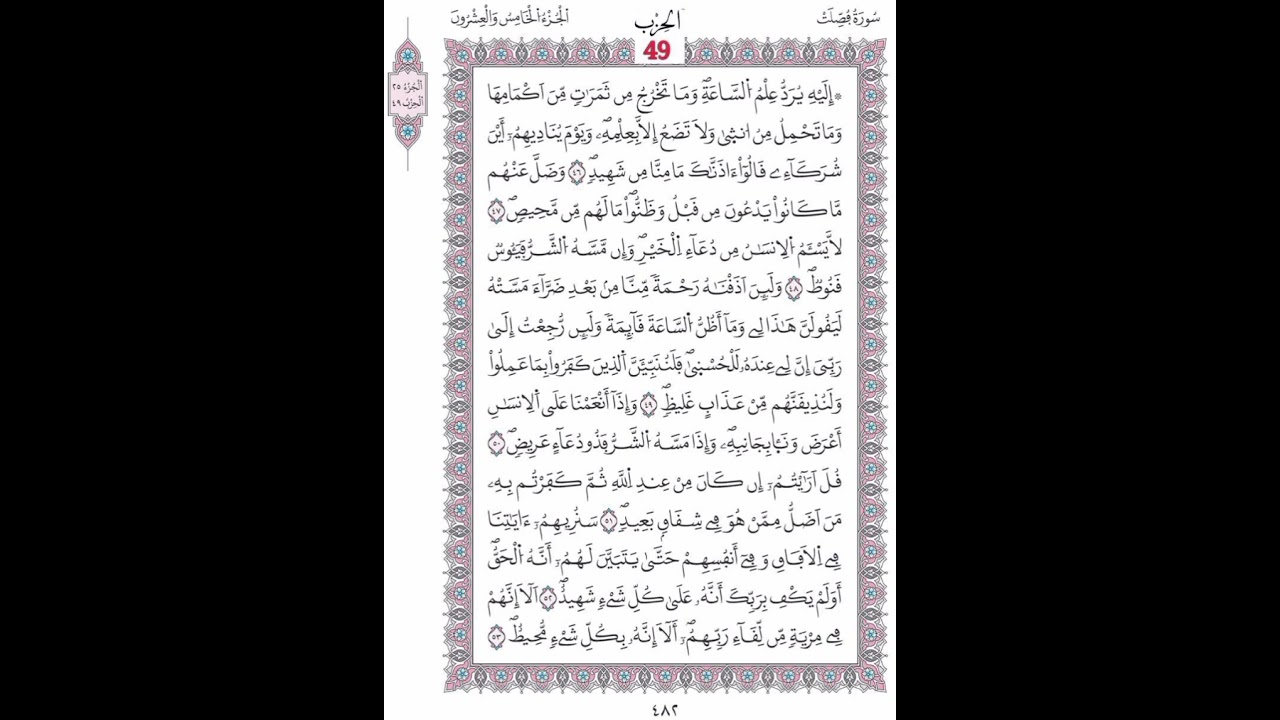 سُورَةُ فُصِّلَتْ
الحِزْب
الْجُزْءُ الْخَامِسُ وَالْعِشْرُونَ
49
اَلْجُزْءُ ٢٥
اَلْحِزْبُ ٤٩
۞ إِلَيْهِ يُرَدُّ عِلْمُ اُ۬لسَّاعَةِۖ وَمَا تَخْرُجُ مِن ثَمَرَٰتٖ مِّنَ اَكْمَامِهَا
وَمَا تَحْمِلُ مِنُ ا۟نث۪ىٰ وَلَا تَضَعُ إِلَّا بِعِلْمِهِۦۖ وَيَوْمَ يُنَادِيهِمُۥٓ أَيْنَ
شُرَكَآءِے قَالُوٓاْ ءَاذَنَّٰكَ مَا مِنَّا مِن شَهِيدٖۖ ٤٦ وَضَلَّ عَنْهُم
مَّا كَانُواْ يَدْعُونَ مِن قَبْلُۖ وَظَنُّواْ مَا لَهُم مِّن مَّحِيصٖۖ ٤٧
لَّا يَسْـَٔمُ اُ۬لِانسَٰنُ مِن دُعَآءِ اِ۬لْخَيْرِۖ وَإِن مَّسَّهُ اُ۬لشَّرُّ فَيَـُٔوسٞ
قَنُوطٞۖ ٤٨ وَلَئِنَ اَذَقْنَٰهُ رَحْمَةٗ مِّنَّا مِنۢ بَعْدِ ضَرَّآءَ مَسَّتْهُ
لَيَقُولَنَّ هَٰذَا لِے وَمَآ أَظُنُّ اُ۬لسَّاعَةَ قَآئِمَةٗ وَلَئِن رُّجِعْتُ إِلَىٰ
رَبِّيَ إِنَّ لِے عِندَهُۥ لَلْحُسْن۪ىٰۖ فَلَنُنَبِّئَنَّ اَ۬لذِينَ كَفَرُواْ بِمَا عَمِلُواْ
وَلَنُذِيقَنَّهُم مِّنْ عَذَابٍ غَلِيظٖۖ ٤٩ وَإِذَآ أَنْعَمْنَا عَلَى اَ۬لِانسَٰنِ
أَعْرَضَ وَنَـَٔا بِجَانِبِهِۦۖ وَإِذَا مَسَّهُ اُ۬لشَّرُّ فَذُو دُعَآءٍ عَرِيضٖۖ ٥٠
قُلَ اَرَآيْتُمُۥٓ إِن كَانَ مِنْ عِندِ اِ۬للَّهِ ثُمَّ كَفَرْتُم بِهِۦ
مَنَ اَضَلُّ مِمَّنْ هُوَ فِے شِقَاقِۢ بَعِيدٖۖ ٥١ سَنُرِيهِمُۥٓ ءَايَٰتِنَا
فِے اِ۬لَافَاقِ وَفِےٓ أَنفُسِهِمْ حَتَّىٰ يَتَبَيَّنَ لَهُمُۥٓ أَنَّهُ اُ۬لْحَقُّۖ
أَوَلَمْ يَكْفِ بِرَبِّكَ أَنَّهُۥ عَلَىٰ كُلِّ شَےْءٖ شَهِيدٌۖ ٥٢ اَلَآ إِنَّهُمْ
فِے مِرْيَةٖ مِّن لِّقَآءِ رَبِّهِمُۥٓۖ أَلَآ إِنَّهُۥ بِكُلِّ شَےْءٖ مُّحِيطٞۖ ٥٣
٤٨٢